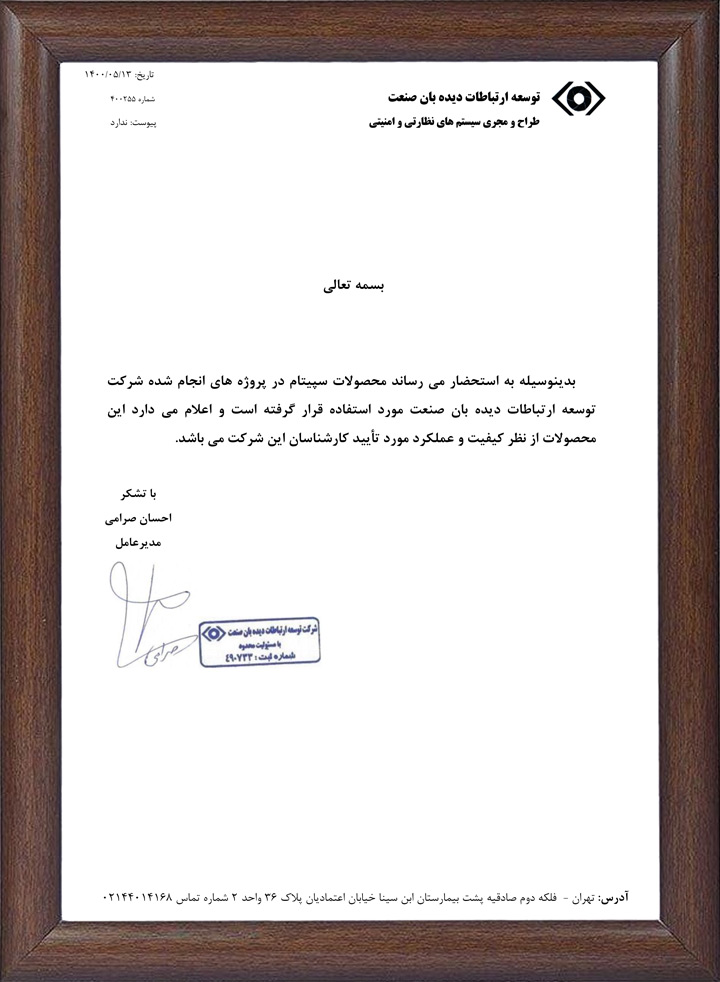 توسعه ارتباطات دیده بان صنعت
طراح و مجری سیستم های نظارتی و امنیتی
تاریخ: ۱۴۰۰/۰۵/۱۳
شماره ۴۰۰۲۵۵
پیوست: ندارد
بسمه تعالی
بدینوسیله به استحضار می رساند محصولات سپیتام در پروژه های انجام شده شرکت
توسعه ارتباطات دیده بان صنعت مورد استفاده قرار گرفته است و اعلام می دارد این
محصولات از نظر کیفیت و عملکرد مورد تأیید کارشناسان این شرکت می باشد.
با تشکر
احسان صرامی
مدیرعامل
صرامی
شرکت توسعه ارتباطات دیده بان صنعت
با مسئولیت محدود
شماره ثبت : ٤٩٠٧٣٣
آدرس: تهران - فلکه دوم صادقیه پشت بیمارستان ابن سینا خیابان اعتمادیان پلاک ۳۶ واحد ۲ شماره تماس ۰۲۱۴۴۰۱۴۱۶۸